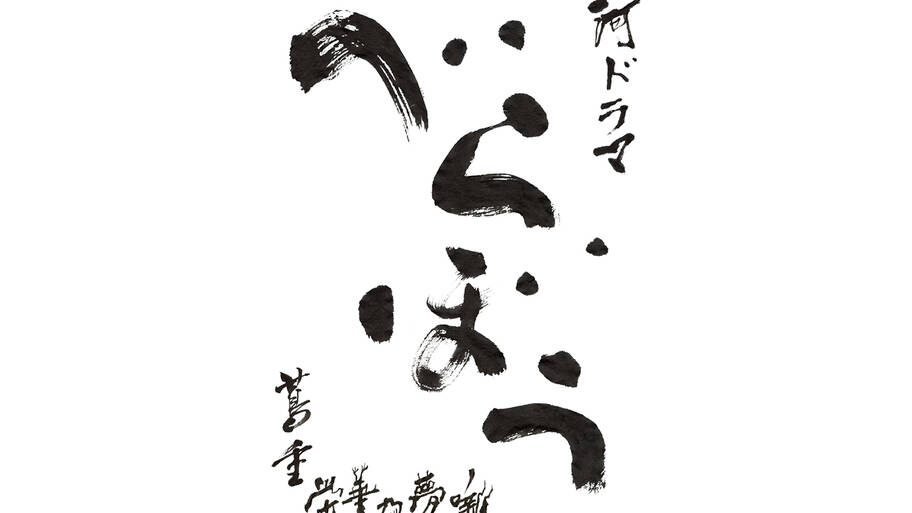 河ドラマ
べらぼう
蔦重
栄華乃夢噺